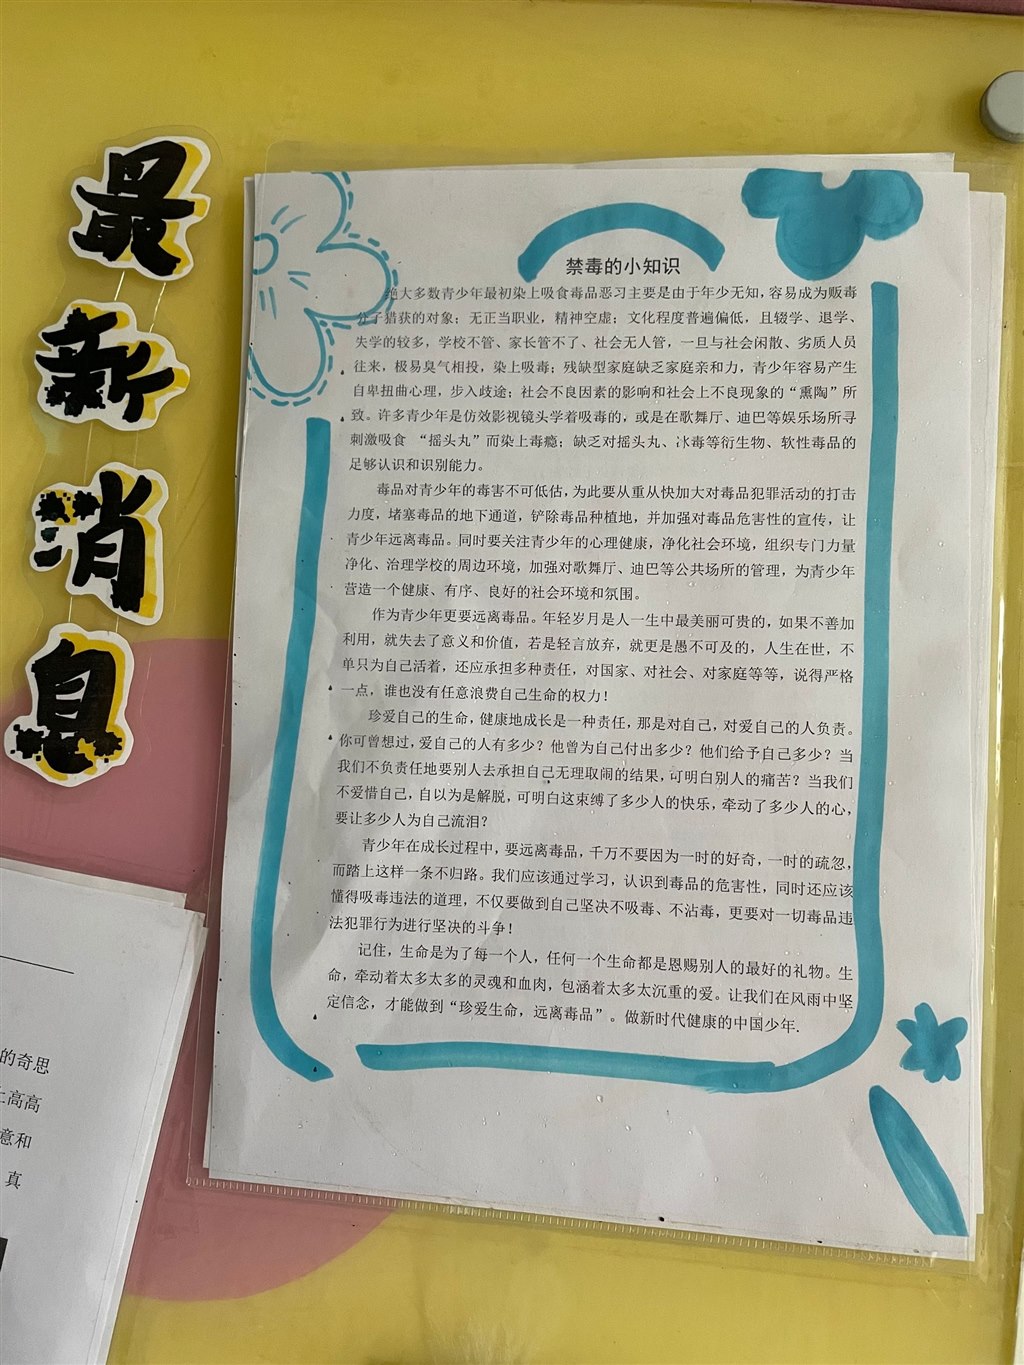 最新消息
禁毒的小知识
绝大多数青少年最初染上吸食毒品恶习主要是由于年少无知，容易成为贩毒
分子猎获的对象；无正当职业，精神空虚；文化程度普遍偏低，且辍学、退学、
失学的较多，学校不管、家长管不了、社会无人管，一旦与社会闲散、劣质人员
往来，极易臭气相投，染上吸毒；残缺型家庭缺乏家庭亲和力，青少年容易产生
自卑扭曲心理，步入歧途；社会不良因素的影响和社会上不良现象的“熏陶”所
致。许多青少年是仿效影视镜头学着吸毒的，或是在歌舞厅、迪巴等娱乐场所寻
刺激吸食 “摇头丸”而染上毒瘾；缺乏对摇头丸、冰毒等衍生物、软性毒品的
足够认识和识别能力。
毒品对青少年的毒害不可低估，为此要从重从快加大对毒品犯罪活动的打击
力度，堵塞毒品的地下通道，铲除毒品种植地，并加强对毒品危害性的宣传，让
青少年远离毒品。同时要关注青少年的心理健康，净化社会环境，组织专门力量
净化、治理学校的周边环境，加强对歌舞厅、迪巴等公共场所的管理，为青少年
营造一个健康、有序、良好的社会环境和氛围。
作为青少年更要远离毒品。年轻岁月是人一生中最美丽可贵的，如果不善加
利用，就失去了意义和价值，若是轻言放弃，就更是愚不可及的，人生在世，不
单只为自己活着，还应承担多种责任，对国家、对社会、对家庭等等，说得严格
一点，谁也没有任意浪费自己生命的权力！
珍爱自己的生命，健康地成长是一种责任，那是对自己，对爱自己的人负责。
你可曾想过，爱自己的人有多少？他曾为自己付出多少？他们给予自己多少？当
我们不负责任地要别人去承担自己无理取闹的结果，可明白别人的痛苦？当我们
不爱惜自己，自以为是解脱，可明白这束缚了多少人的快乐，牵动了多少人的心，
要让多少人为自己流泪？
青少年在成长过程中，要远离毒品，千万不要因为一时的好奇，一时的疏忽，
而踏上这样一条不归路。我们应该通过学习，认识到毒品的危害性，同时还应该
懂得吸毒违法的道理，不仅要做到自己坚决不吸毒、不沾毒，更要对一切毒品违
法犯罪行为进行坚决的斗争！
记住，生命是为了每一个人，任何一个生命都是恩赐别人的最好的礼物。生
命，牵动着太多太多的灵魂和血肉，包涵着太多太沉重的爱。让我们在风雨中坚
定信念，才能做到“珍爱生命，远离毒品”。做新时代健康的中国少年.
的奇思
上高高
意和
真